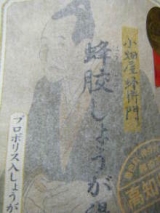 小畑屋蜂衛門
蜂胶しょうが湯
プロポリス入しょうが
高知